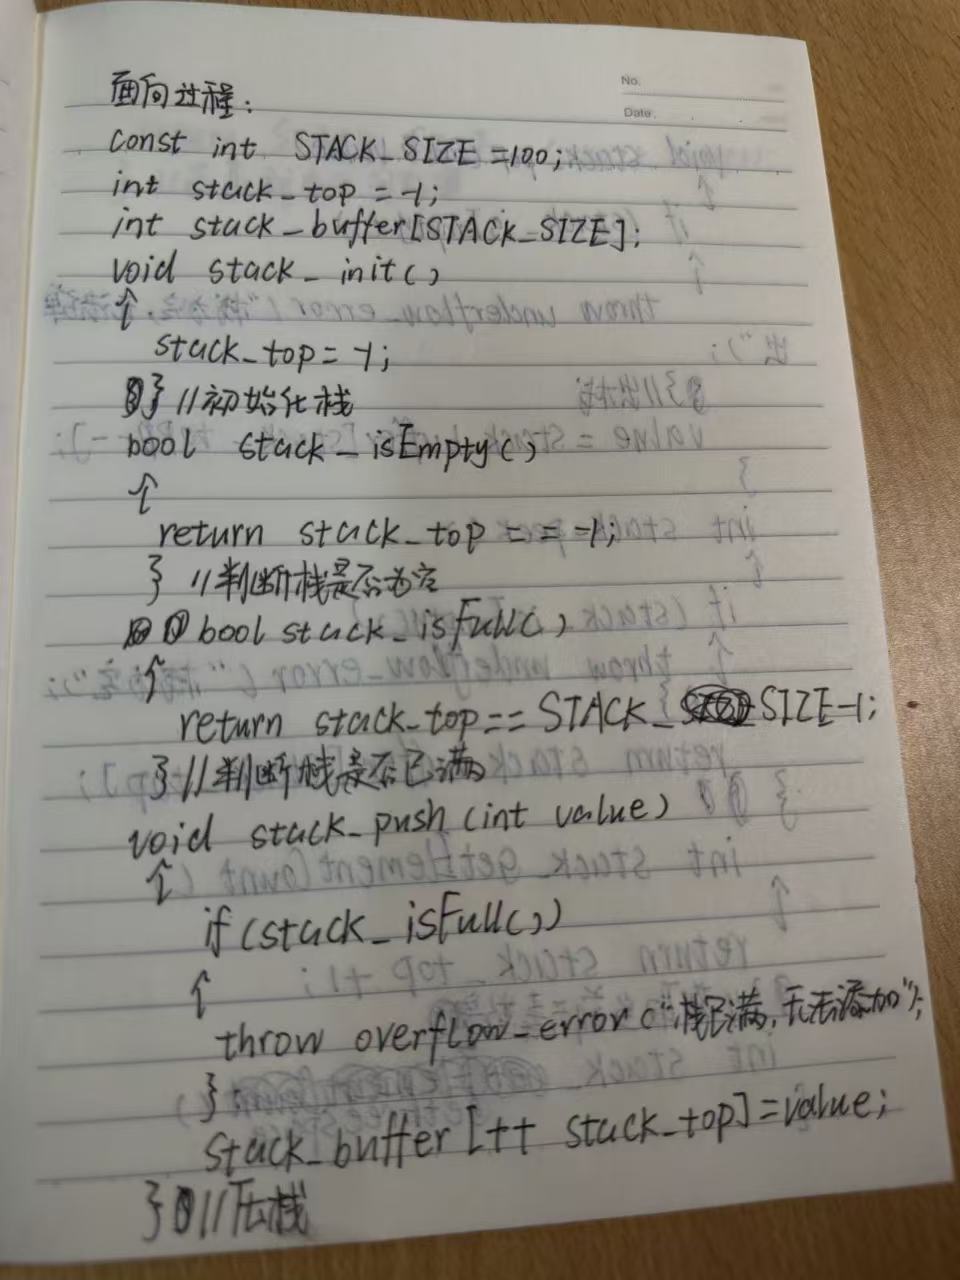 No.
Date.
面向过程:
const int STACK_SIZE =100;
int stack_top = -1;
int stack_buffer[STACK_SIZE];
void stack_init()
{
stack_top = -1;
} //初始化栈
bool stack_isEmpty()
{
return stack_top == -1;
} //判断栈是否为空
bool stack_isFull()
{
return stack_top == STACK_SIZE-1;
} //判断栈是否已满
void stack_push (int value)
{
if (stack_isFull())
{
throw overflow_error("栈已满,无法添加");
}
stack_buffer[++ stack_top] = value;
} //压栈